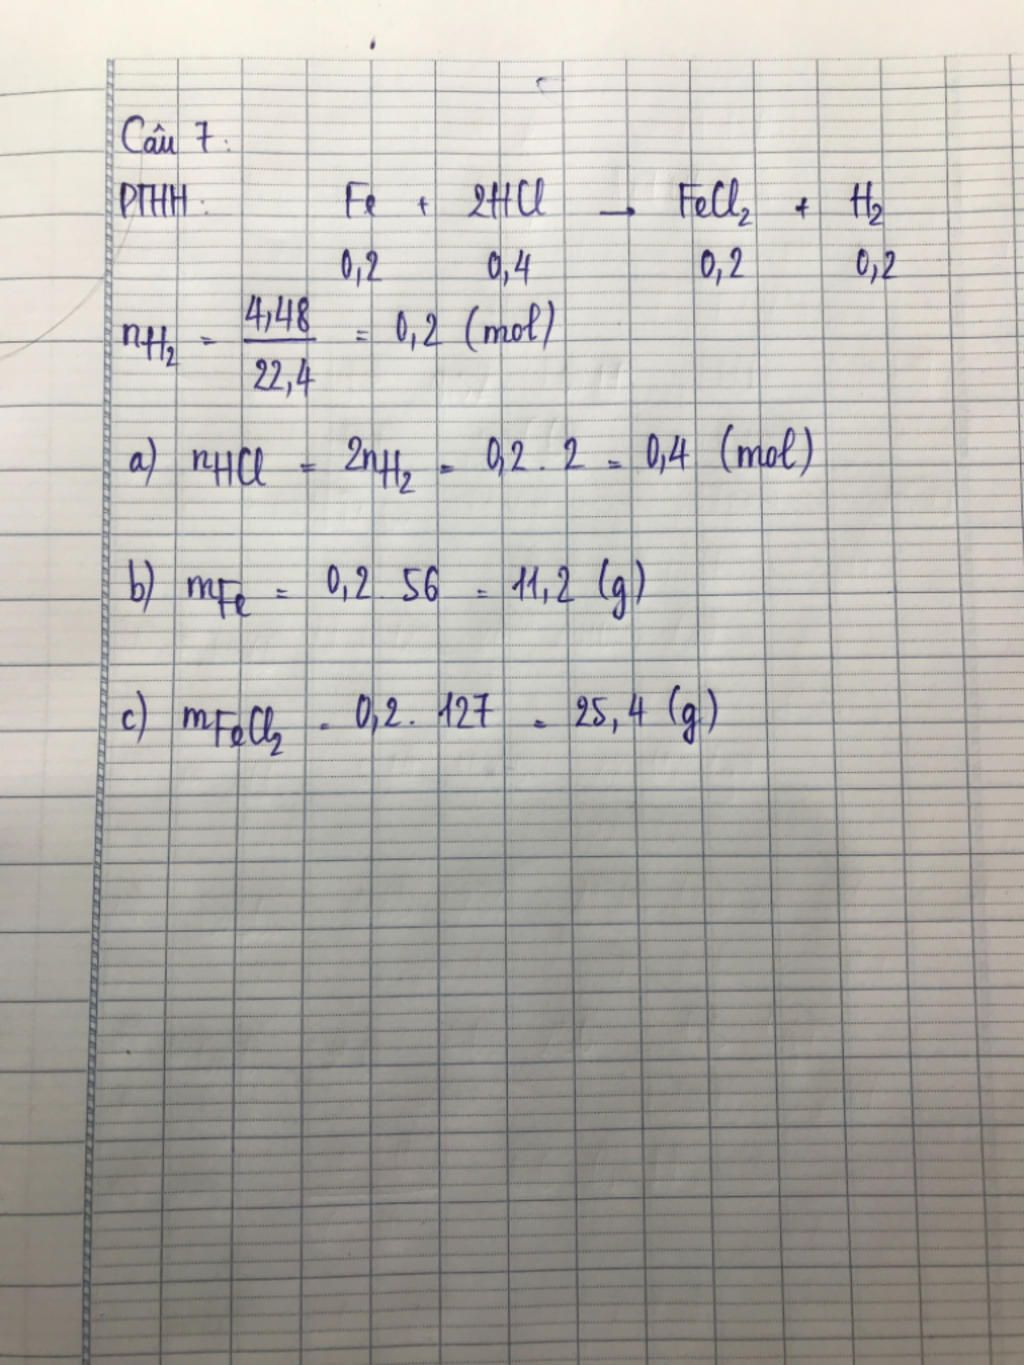 Câu 7:
PTHH: Fe + 2HCl → FeCl₂ + H₂
0,2 0,4 0,2 0,2
nH₂ = 4,48/22,4 = 0,2 (mol)
a) nHCl = 2nH₂ = 0,2 . 2 = 0,4 (mol)
b) mFe = 0,2 . 56 = 11,2 (g)
c) mFeCl₂ = 0,2 . 127 = 25,4 (g)